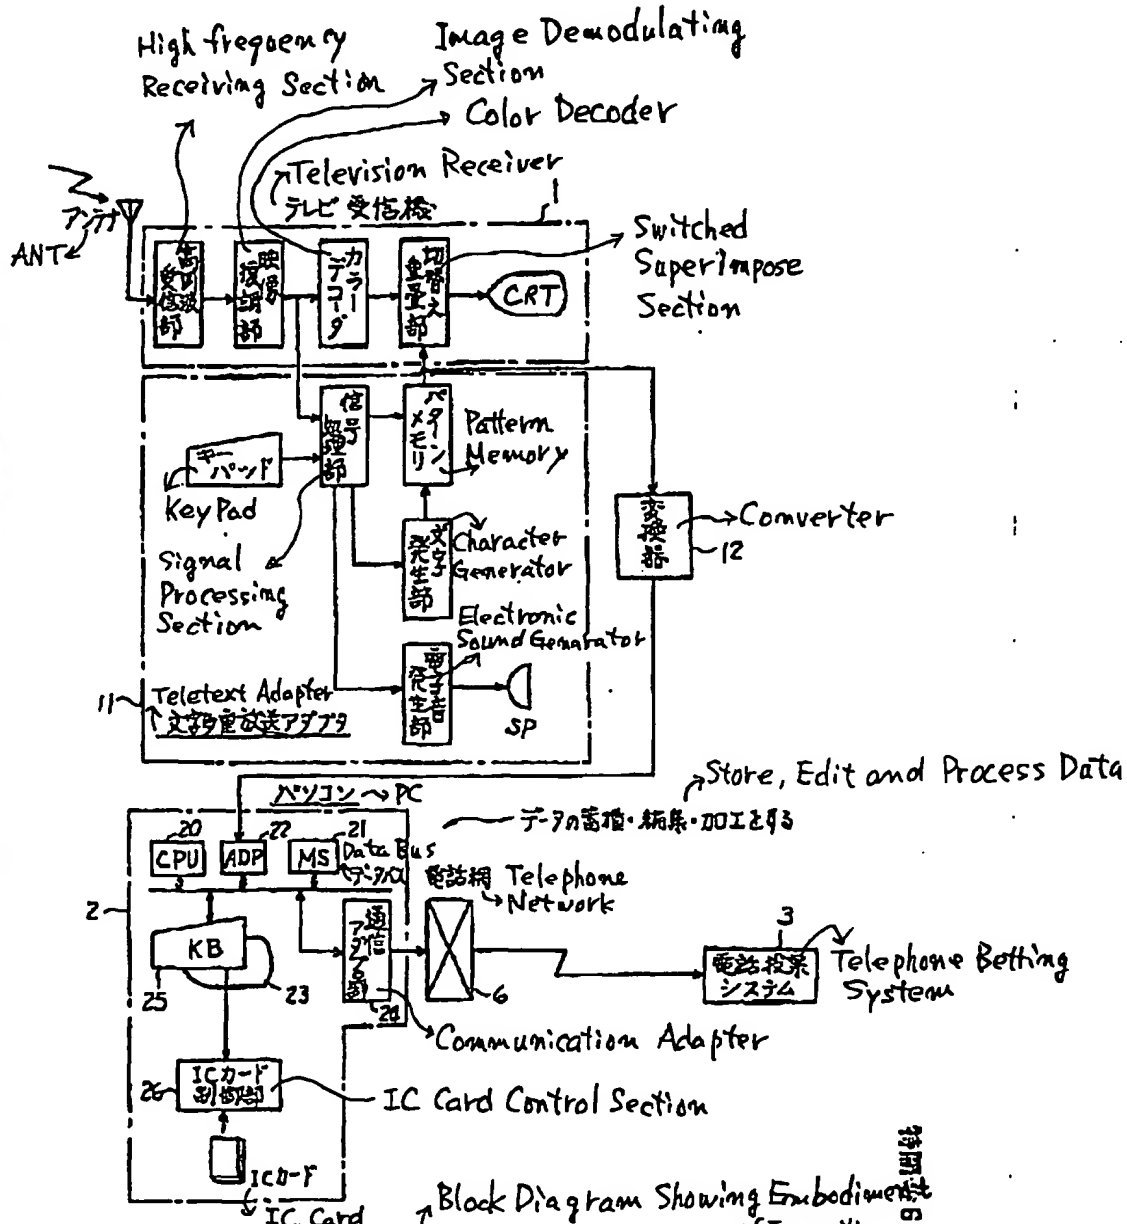 High frequency
Receiving Section
Image Demodulating
Section
Color Decoder
Television Receiver
テレビ受信機
1
アンテナ
ANT
高周波
受信部
映像
復調部
カラー
デコーダ
切替え
重畳部
CRT
Switched
Superimpose
Section
信号
処理部
パターン
メモリ
Pattern
Memory
キー
パッド
Key Pad
Signal
Processing
Section
文字
発生部
Character
Generator
変換器
Converter
12
Electronic
Sound Genarator
電子音
発生部
SP
11
Teletext Adapter
文字多重放送アダプタ
Store, Edit and Process Data
データの蓄積・編集・加工をする
パソコン → PC
20
22
21
CPU
ADP
MS
Data Bus
データバス
電話網
Telephone
Network
2
KB
25
23
通信
アダプタ部
24
6
3
電話投票
システム
Telephone Betting
System
Communication Adapter
26
ICカード
制御部
IC Card Control Section
ICカード
IC Card
Block Diagram Showing Embodiment